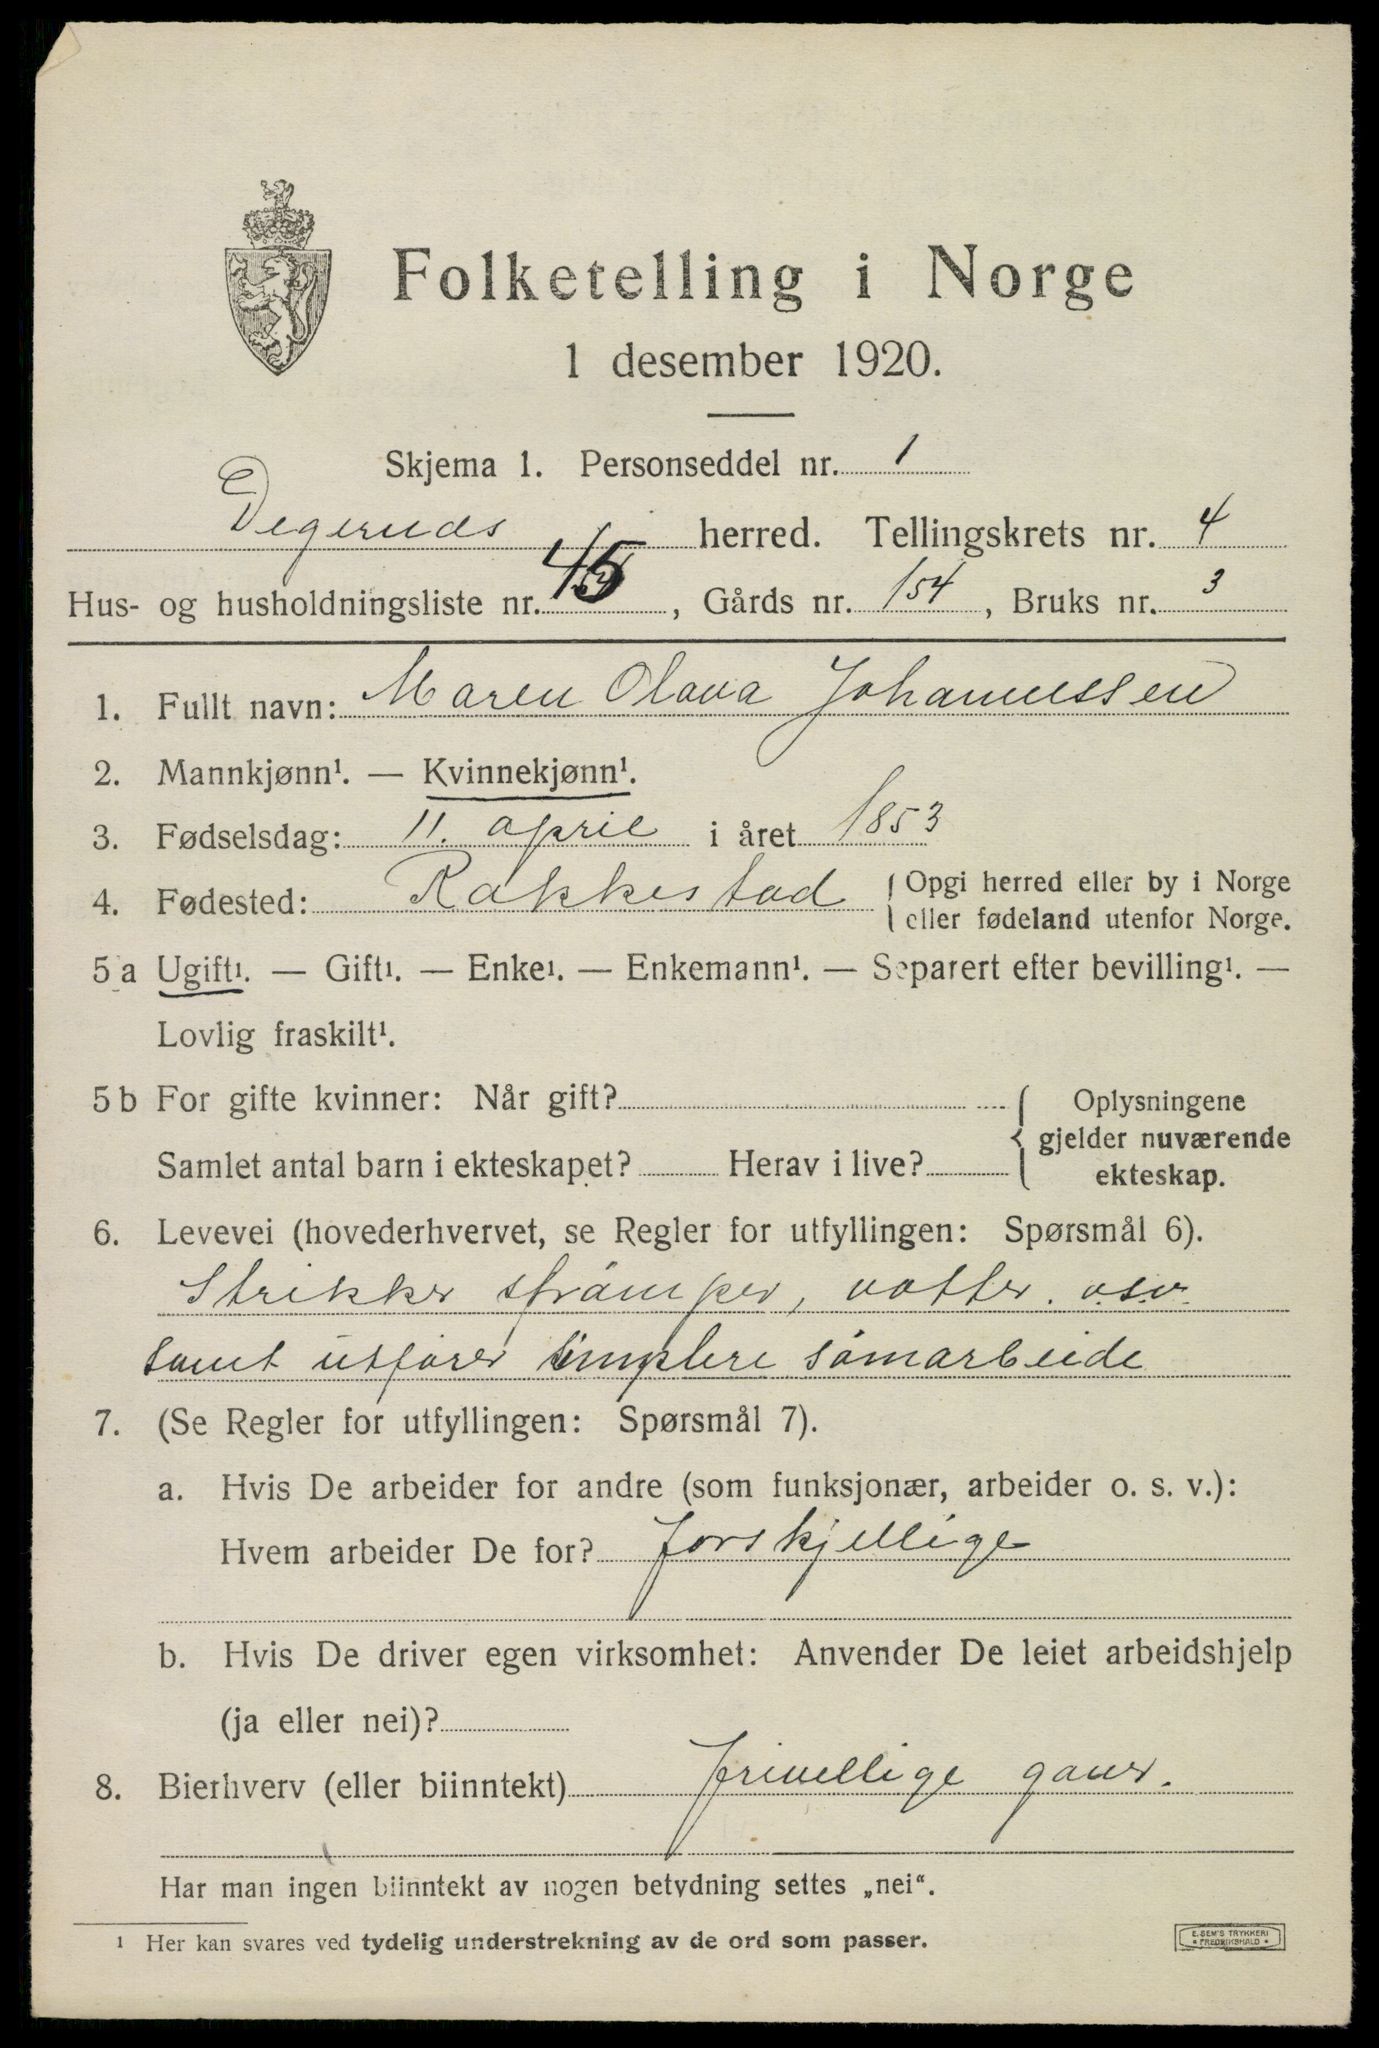 Folketelling i Norge
1 desember 1920.
Skjema 1. Personseddel nr. 1
Degernds herred. Tellingskrets nr. 4
Hus- og husholdningsliste nr. 45, Gårds nr. 154, Bruks nr. 3
1. Fullt navn: Maren Olava Johannessen
2. Mannkjønn¹. — Kvinnekjønn¹.
3. Fødselsdag: 11. april i året 1853
4. Fødested: Rakkestad { Opgi herred eller by i Norge
eller fødeland utenfor Norge.
5 a Ugift¹. — Gift¹. — Enke¹. — Enkemann¹. — Separert efter bevilling¹. —
Lovlig fraskilt¹.
5 b For gifte kvinner: Når gift? { Oplysningene
gjelder nuværende
Samlet antal barn i ekteskapet? Herav i live? ekteskap.
6. Levevei (hovederhvervet, se Regler for utfyllingen: Spørsmål 6).
Strikker strømper, votter. osv.
samt utfører simplere sømarbeide
7. (Se Regler for utfyllingen: Spørsmål 7).
a. Hvis De arbeider for andre (som funksjonær, arbeider o. s. v.):
Hvem arbeider De for? forskjellige
b. Hvis De driver egen virksomhet: Anvender De leiet arbeidshjelp
(ja eller nei)?
8. Bierhverv (eller biinntekt) frivellige gaver.
Har man ingen biinntekt av nogen betydning settes „nei“.
¹ Her kan svares ved tydelig understrekning av de ord som passer.
E. SEM'S TRYKKERI
* FREDRIKSHALD *